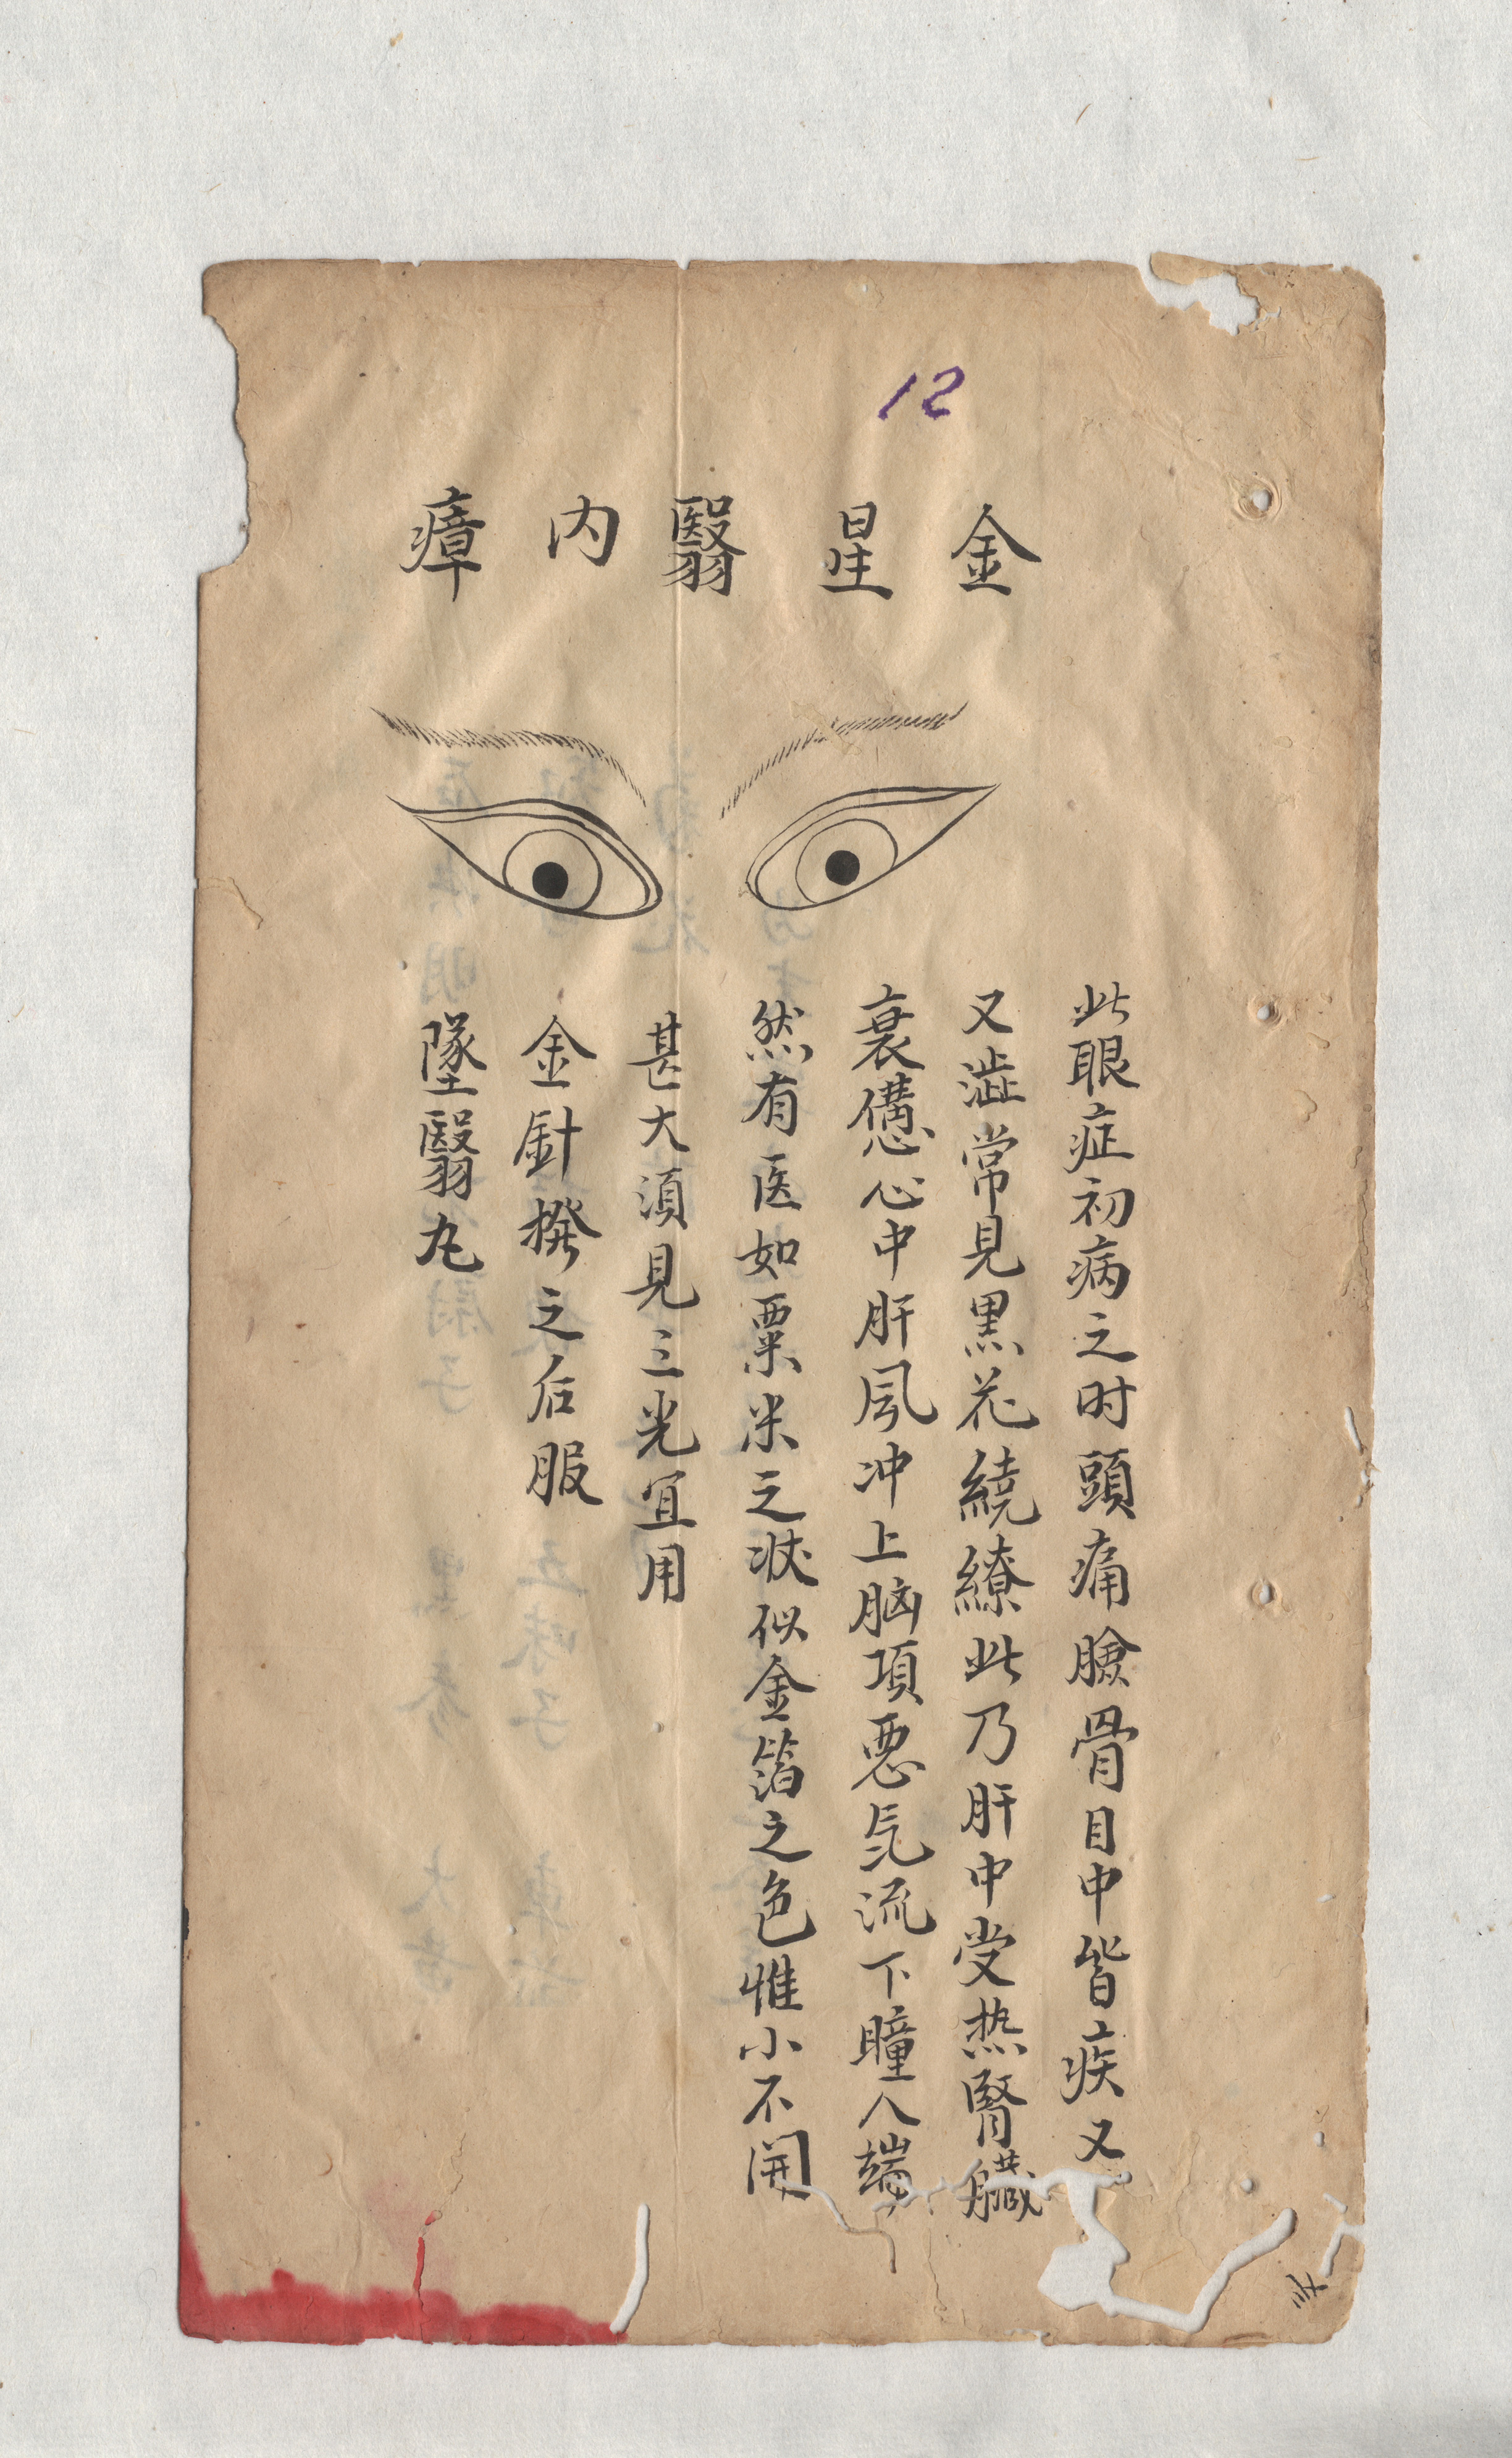 12
金星翳内瘴
此眼症初病之时頭痛臉骨目中皆疾又
又澁常見黒花繞繚此乃肝中受热腎臟
衰憊心中肝風冲上脑項悪氣流下瞳人端
然有医如粟米之狀似金箔之色惟小不開
甚大須見三光宜用
金針撥之后服
墜翳丸